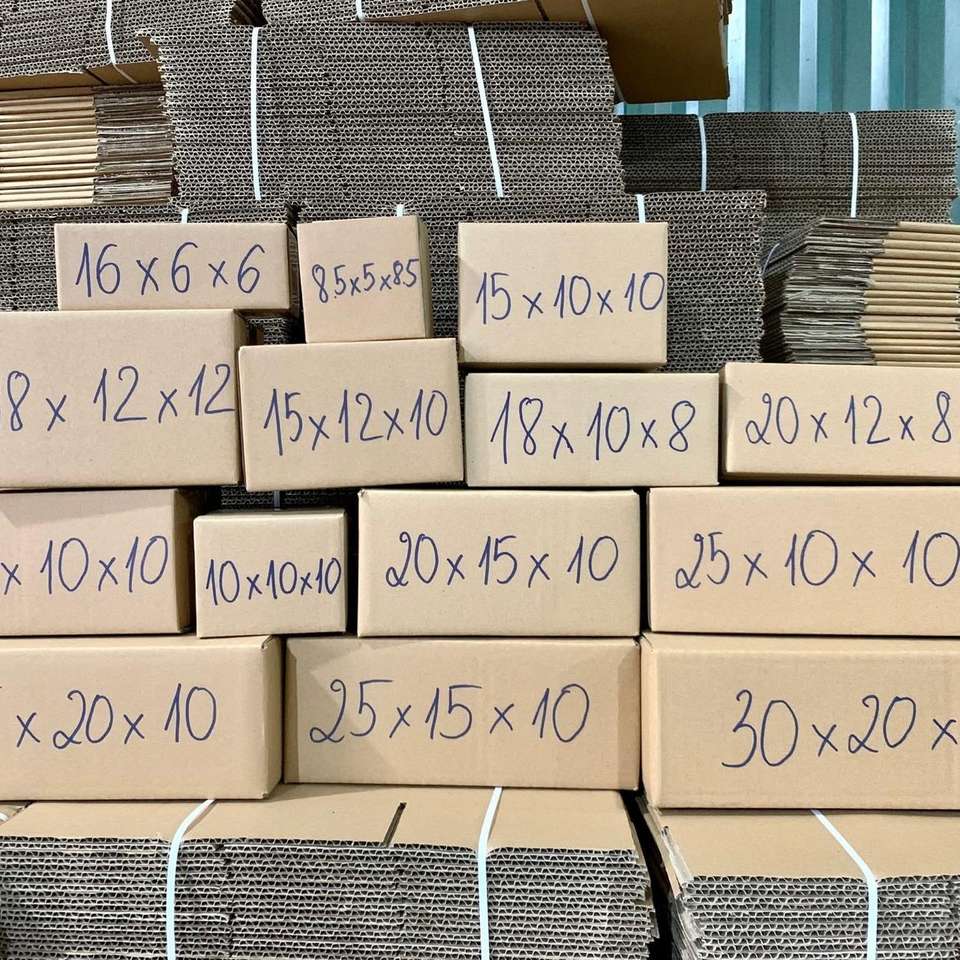 16 x 6 x 6
8.5x5x8.5
15 x 10 x 10
8 x 12 x 12
15x12x10
18 x 10 x 8
20 x 12 x 8
x 10 x 10
10x10x10
20 x 15 x 10
25 x 10 x 10
x 20 x 10
25 x 15 x 10
30 x 20 x